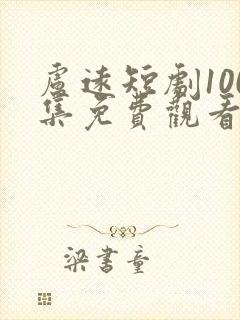 盧遠短劇100
集免費觀看
梁書童